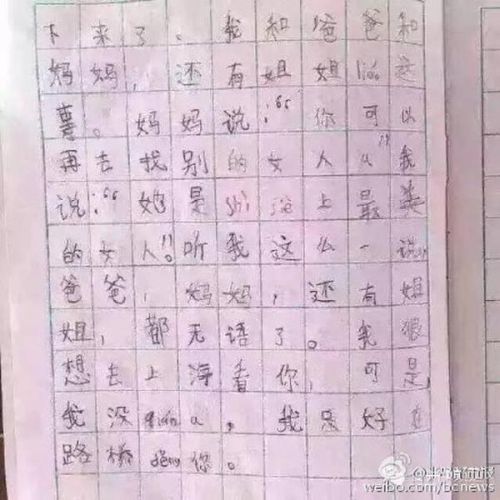 下来了。我和爸爸和
妈妈,还有姐姐liao这
事。妈妈说:“你可以
再去找别的女人a”我
说:“她是shi 上最美
的女人!”听我这么一说,
爸爸,妈妈,还有姐
姐,都无语了。我很
想去上海看你,可是,
我没qian a,我只好在
路桥deng你。
weibo.com/bcnews